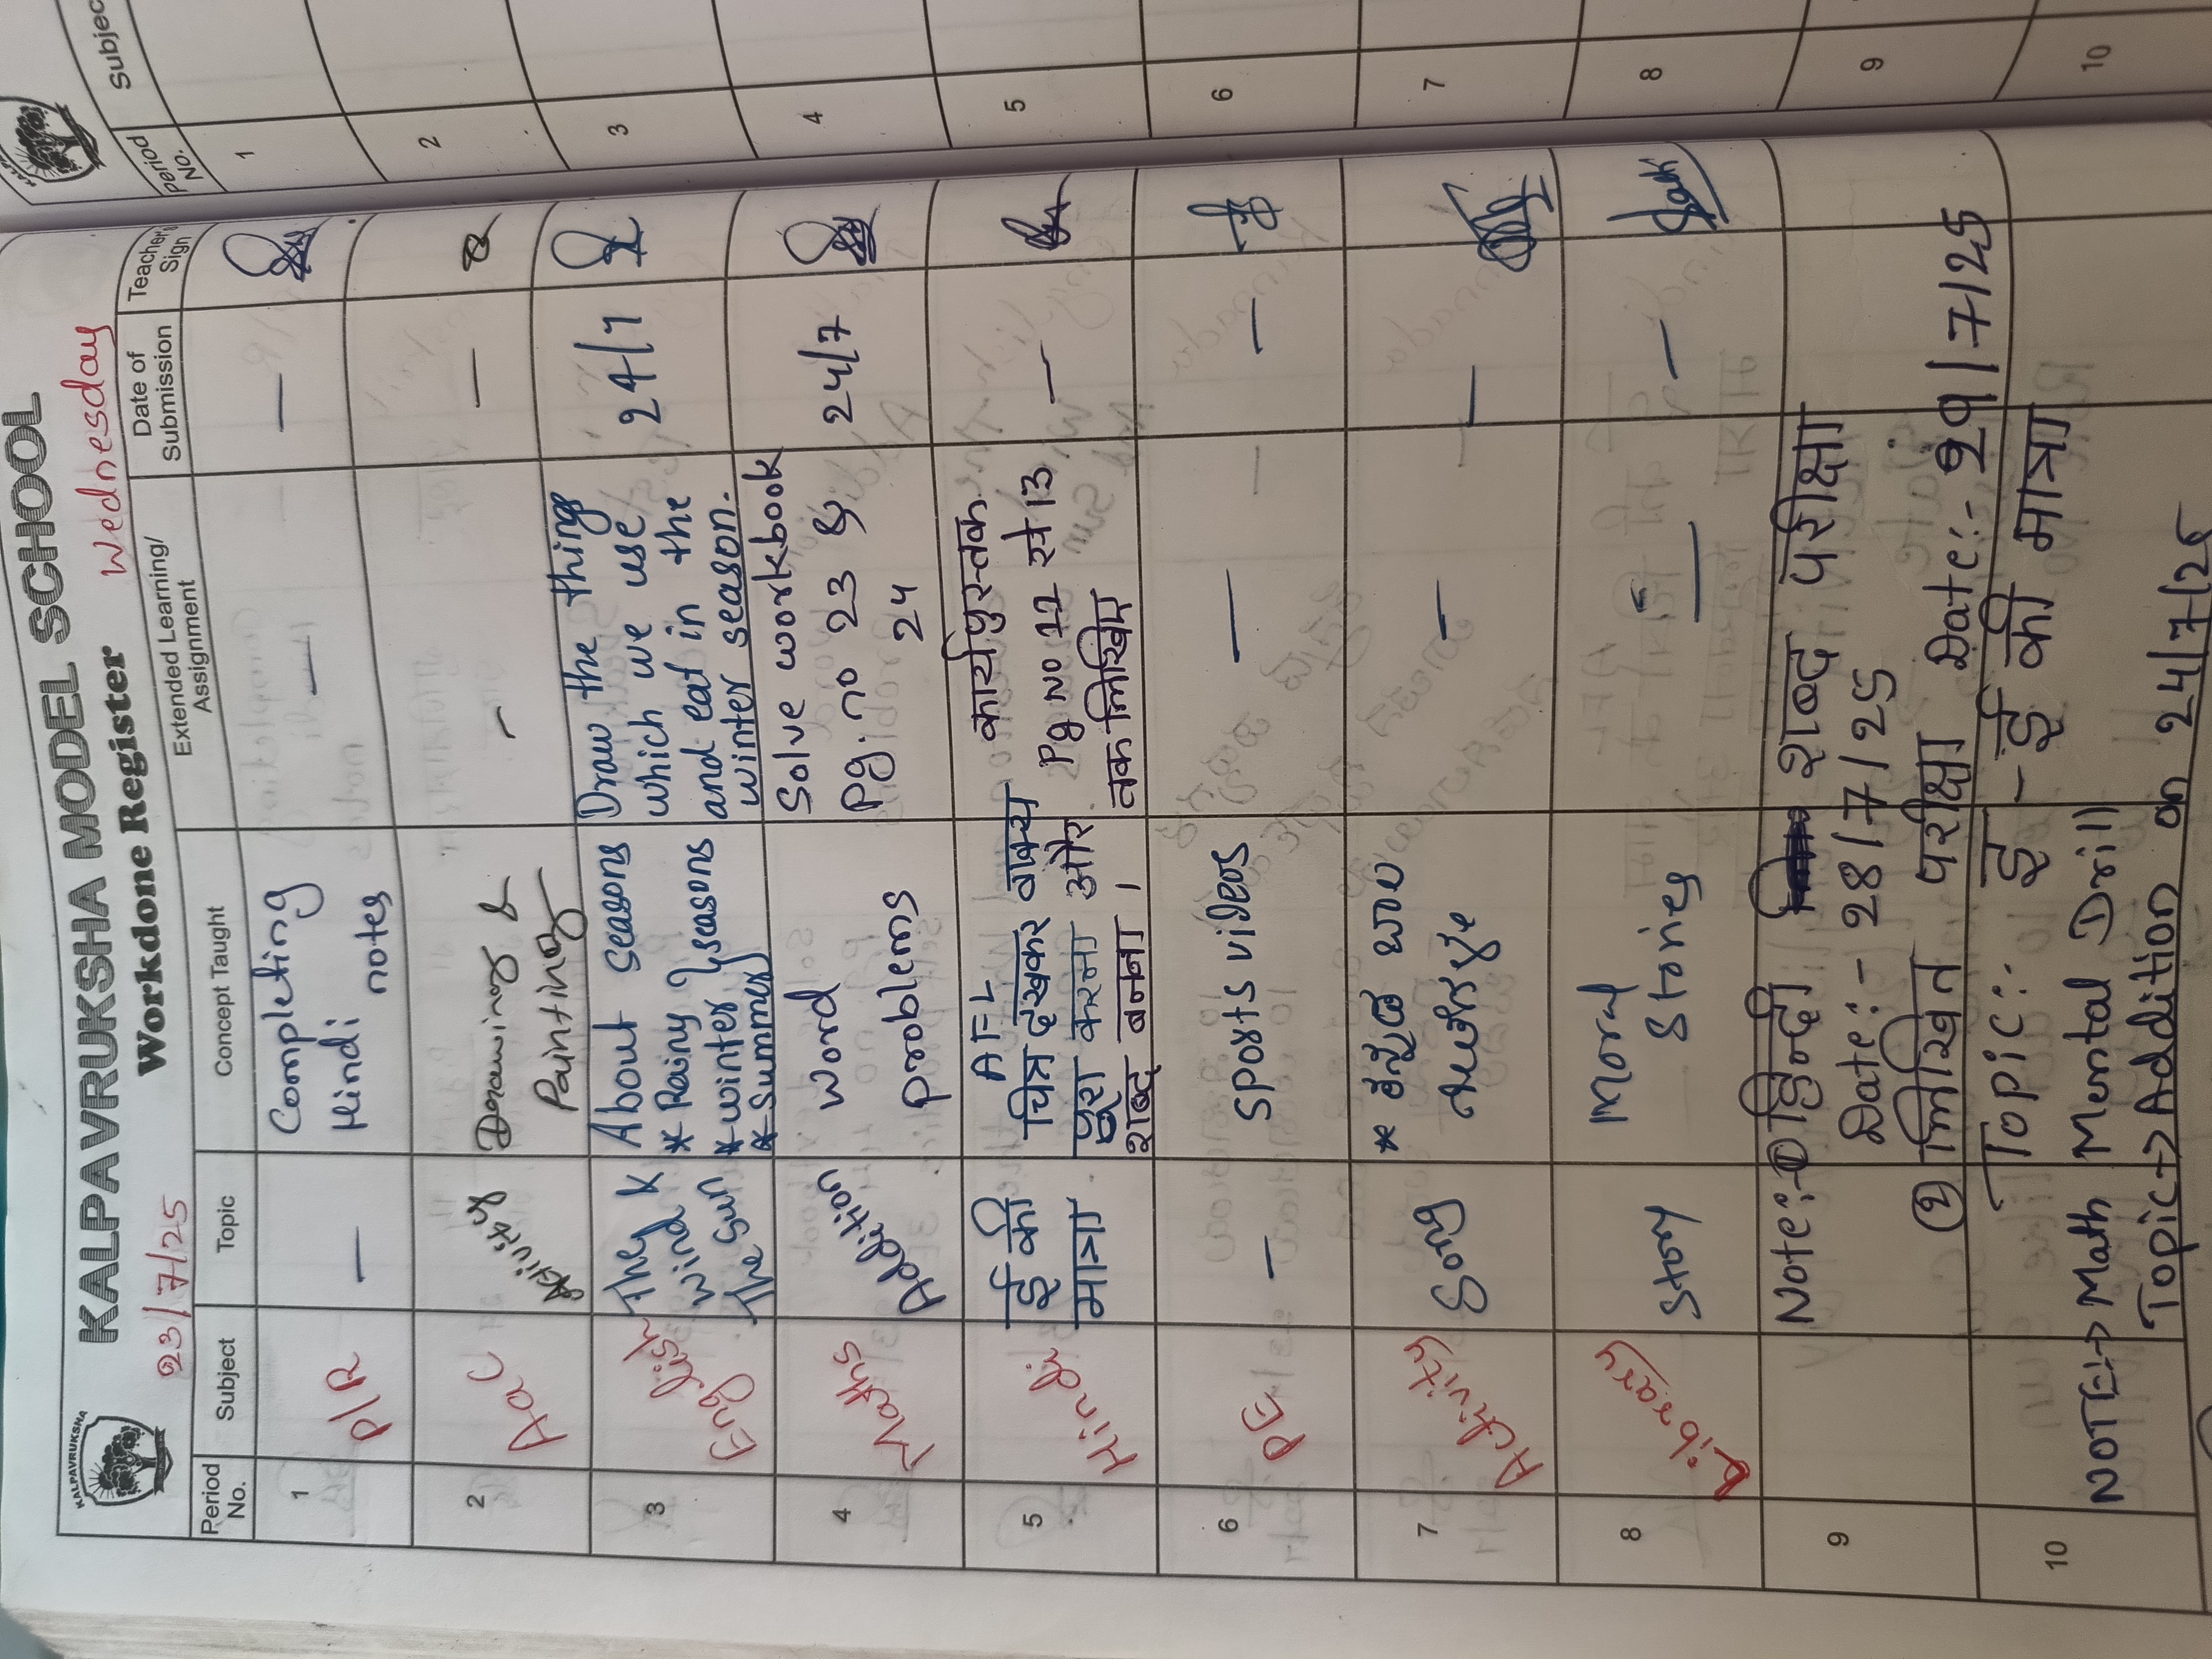 KALPAVRUKSHA
KALPAVRUKSHA MODEL SCHOOL
23/7/25 Workdone Register Wednesday
Period No. Subject Topic Concept Taught Extended Learning/ Assignment Date of Submission Teacher's Sign
1 PIR — Completing — —
Hindi notes
2 AaC Activity Drawing & - —
Painting
3 English The About seasons Draw the things 24/7
wind & * Rainy seasons which we use
The Sun * winter and eat in the
* Summer winter season.
4 Maths Addition word Solve workbook 24/7
problems Pg. no 23 &
24
5 Hindi ई की AFL कार्यपुस्तक —
मात्रा चित्र देखकर वाक्य Pg No 12 से 13
पूरा करना और तक लिखिए
शब्द बनना ।
6 PE — Sports videos — —
7 Activity Song * - —
8 Library Story Moral — —
Stories
9 Note:- ① हिन्दी शब्द परीक्षा
Date:- 28/7/25
② लिखित परीक्षा Date:- 29/7/25
10 Topic:- इ - ई की मात्रा
NOTE:-> Math Mental Drill
Topic -> Addition on 24/7/25
Period No. Subject
1
2
3
4
5
6
7
8
9
10